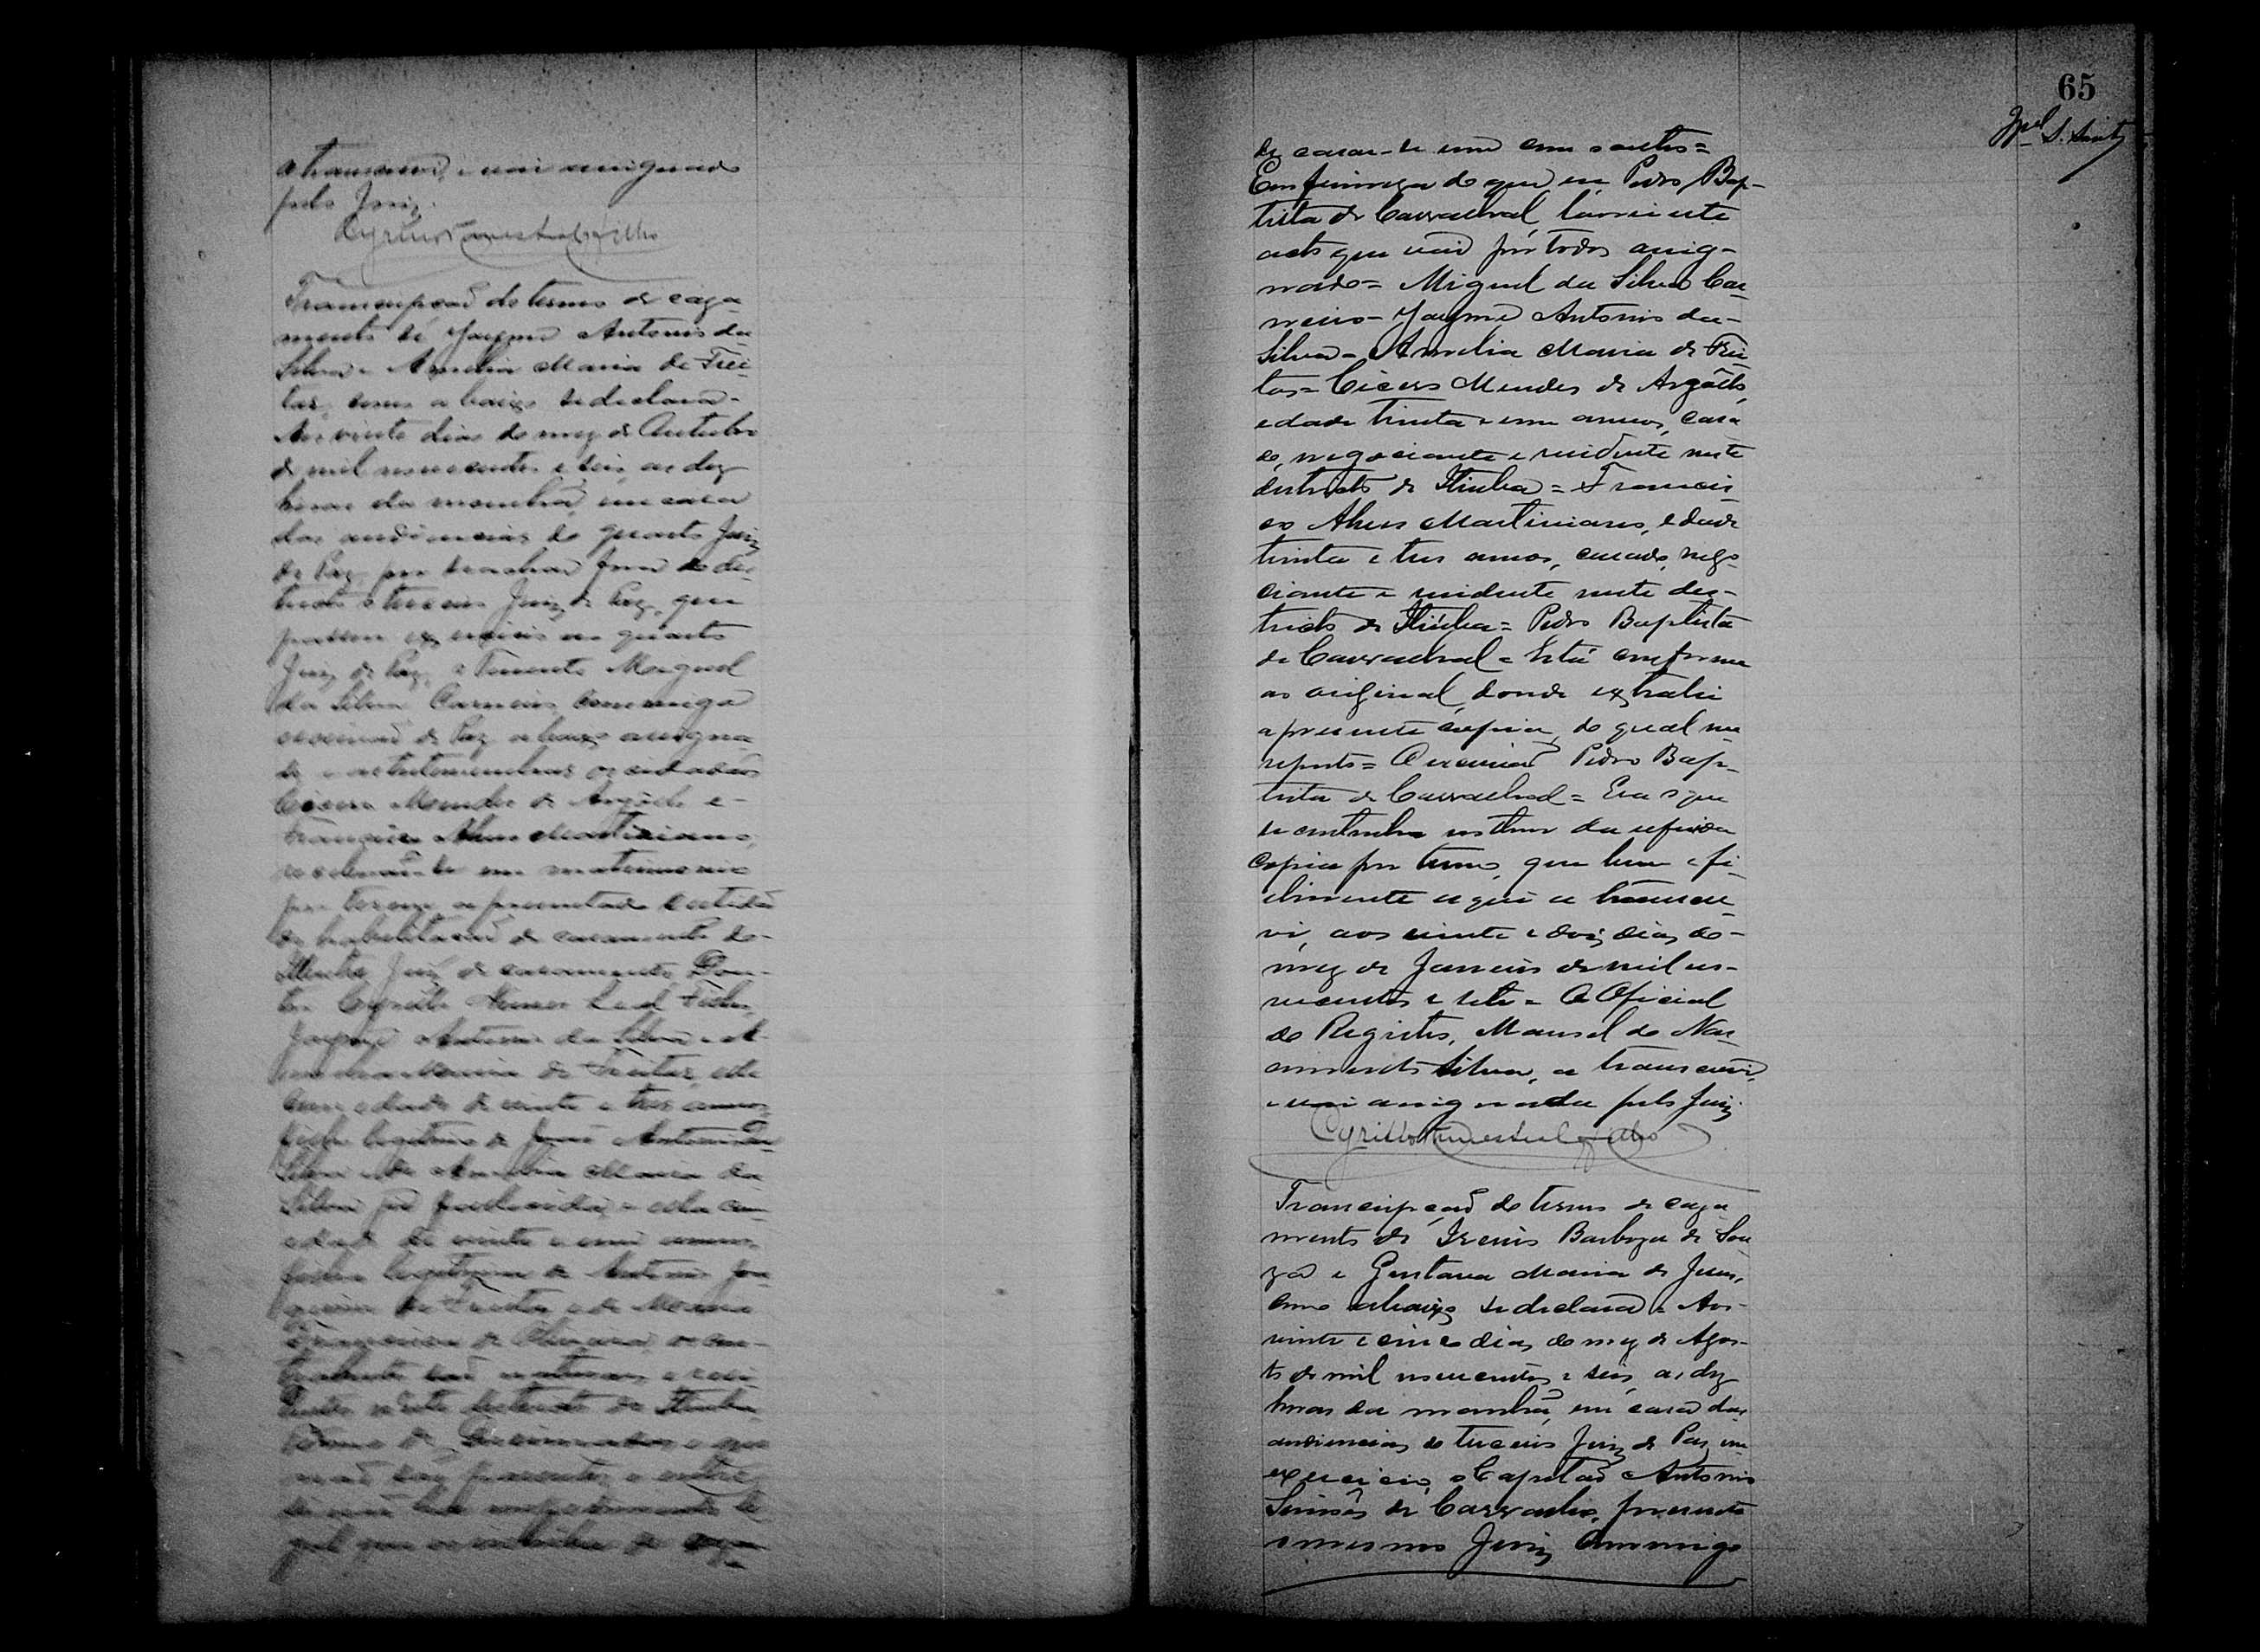 a transcrevi, e vai assignado
pelo Juiz.
Cyrillo Nunes Leal Filho
Transcripçaõ do termo de caza-
mento de Jayme Antonio da
Silva e Amelia Maria de Frei-
tas, como abaixo se declara-
Aos vinte dias do mez de Outubro
de mil novecentos e seis, as dez
horas da manhã, em casa
das audiencias do quarto Juiz
de Paz, por se achar fora do dis-
tricto o terceiro Juiz de Paz, que
passou exercicio ao quarto
Juiz de Paz, o Tenente Miguel
da Silva Carneiro, commigo
escrivaõ de Paz abaixo assigna-
do e as testemunhas os cidadãos
Cicero Mendes de Argôllo e-
Francisco Alves Martiniano,
receberaõ-se em matrimonio
por terem apresentado certidaõ
de habilitaçaõ de casamento do-
Juiz de casamentos, Dou-
tor Cyrillo Nunes Leal Filho,
Jayme Antonio da Silva e A-
melia Maria de Freitas, elle
com edade de vinte e tres annos,
filho legitimo de José Antonio da
Silva e de Amelia Maria da
Silva já fallecida, e ella com
edade de vinte e um annos,
filha legitima de Antonio Joa-
quim de Freitas e de Maria
Francisca de os con-
trahentes saõ naturaes e resi-
dentes neste districto de Itiuba,
termo de e que
naõ saõ parentes, e entre
si naõ ha impedimento le-
gal que os inhiba de
65
de casar-se um com o outro=
Em firmeza do que eu Pedro Bap-
tista de Carvalhal, lavrei este
acto que vai por todos assig-
nado= Miguel da Silva Car-
neiro- Jayme Antonio da-
Silva- Amelia Maria de Frei-
tas= Cicero Mendes de Argôllo,
edade trinta e um annos, casa-
do, negociante e residente neste
districto de Itiuba= Francis-
co Alves Martiniano, edade
trinta e tres annos, casado, nego-
ciante e residente neste dis-
tricto de Itiuba= Pedro Baptista
de Carvalhal= Está conforme
ao original, donde extrahi
a presente copia, do qual me
reporto= O escrivaõ Pedro Bap-
tista de Carvalhal= Era o que
se continha no theor da referida
copia por termo, que bem e fi-
elmente aqui a transcre-
vi, aos vinte e dois dias do-
mez de Janeiro de mil no-
vecentos e sete= O Oficial
do Registro, Manoel do Nas-
cimento Silva, a transcrevi,
e vai assignada pelo Juiz.
Cyrillo Nunes Leal Filho
Transcripçaõ do termo de caza-
mento de Irenio Barboza de Sou-
za e Gustava Maria de Jesus,
como abaixo se declara= Aos-
vinte e cinco dias do mez de Agos-
to de mil novecentos e seis, as dez
horas da manhã, em casa das
audiencias do terceiro Juiz de Paz em
exercicio, o Capitaõ Antonio
Simões de Carvalho, presente
o mesmo Juiz commigo